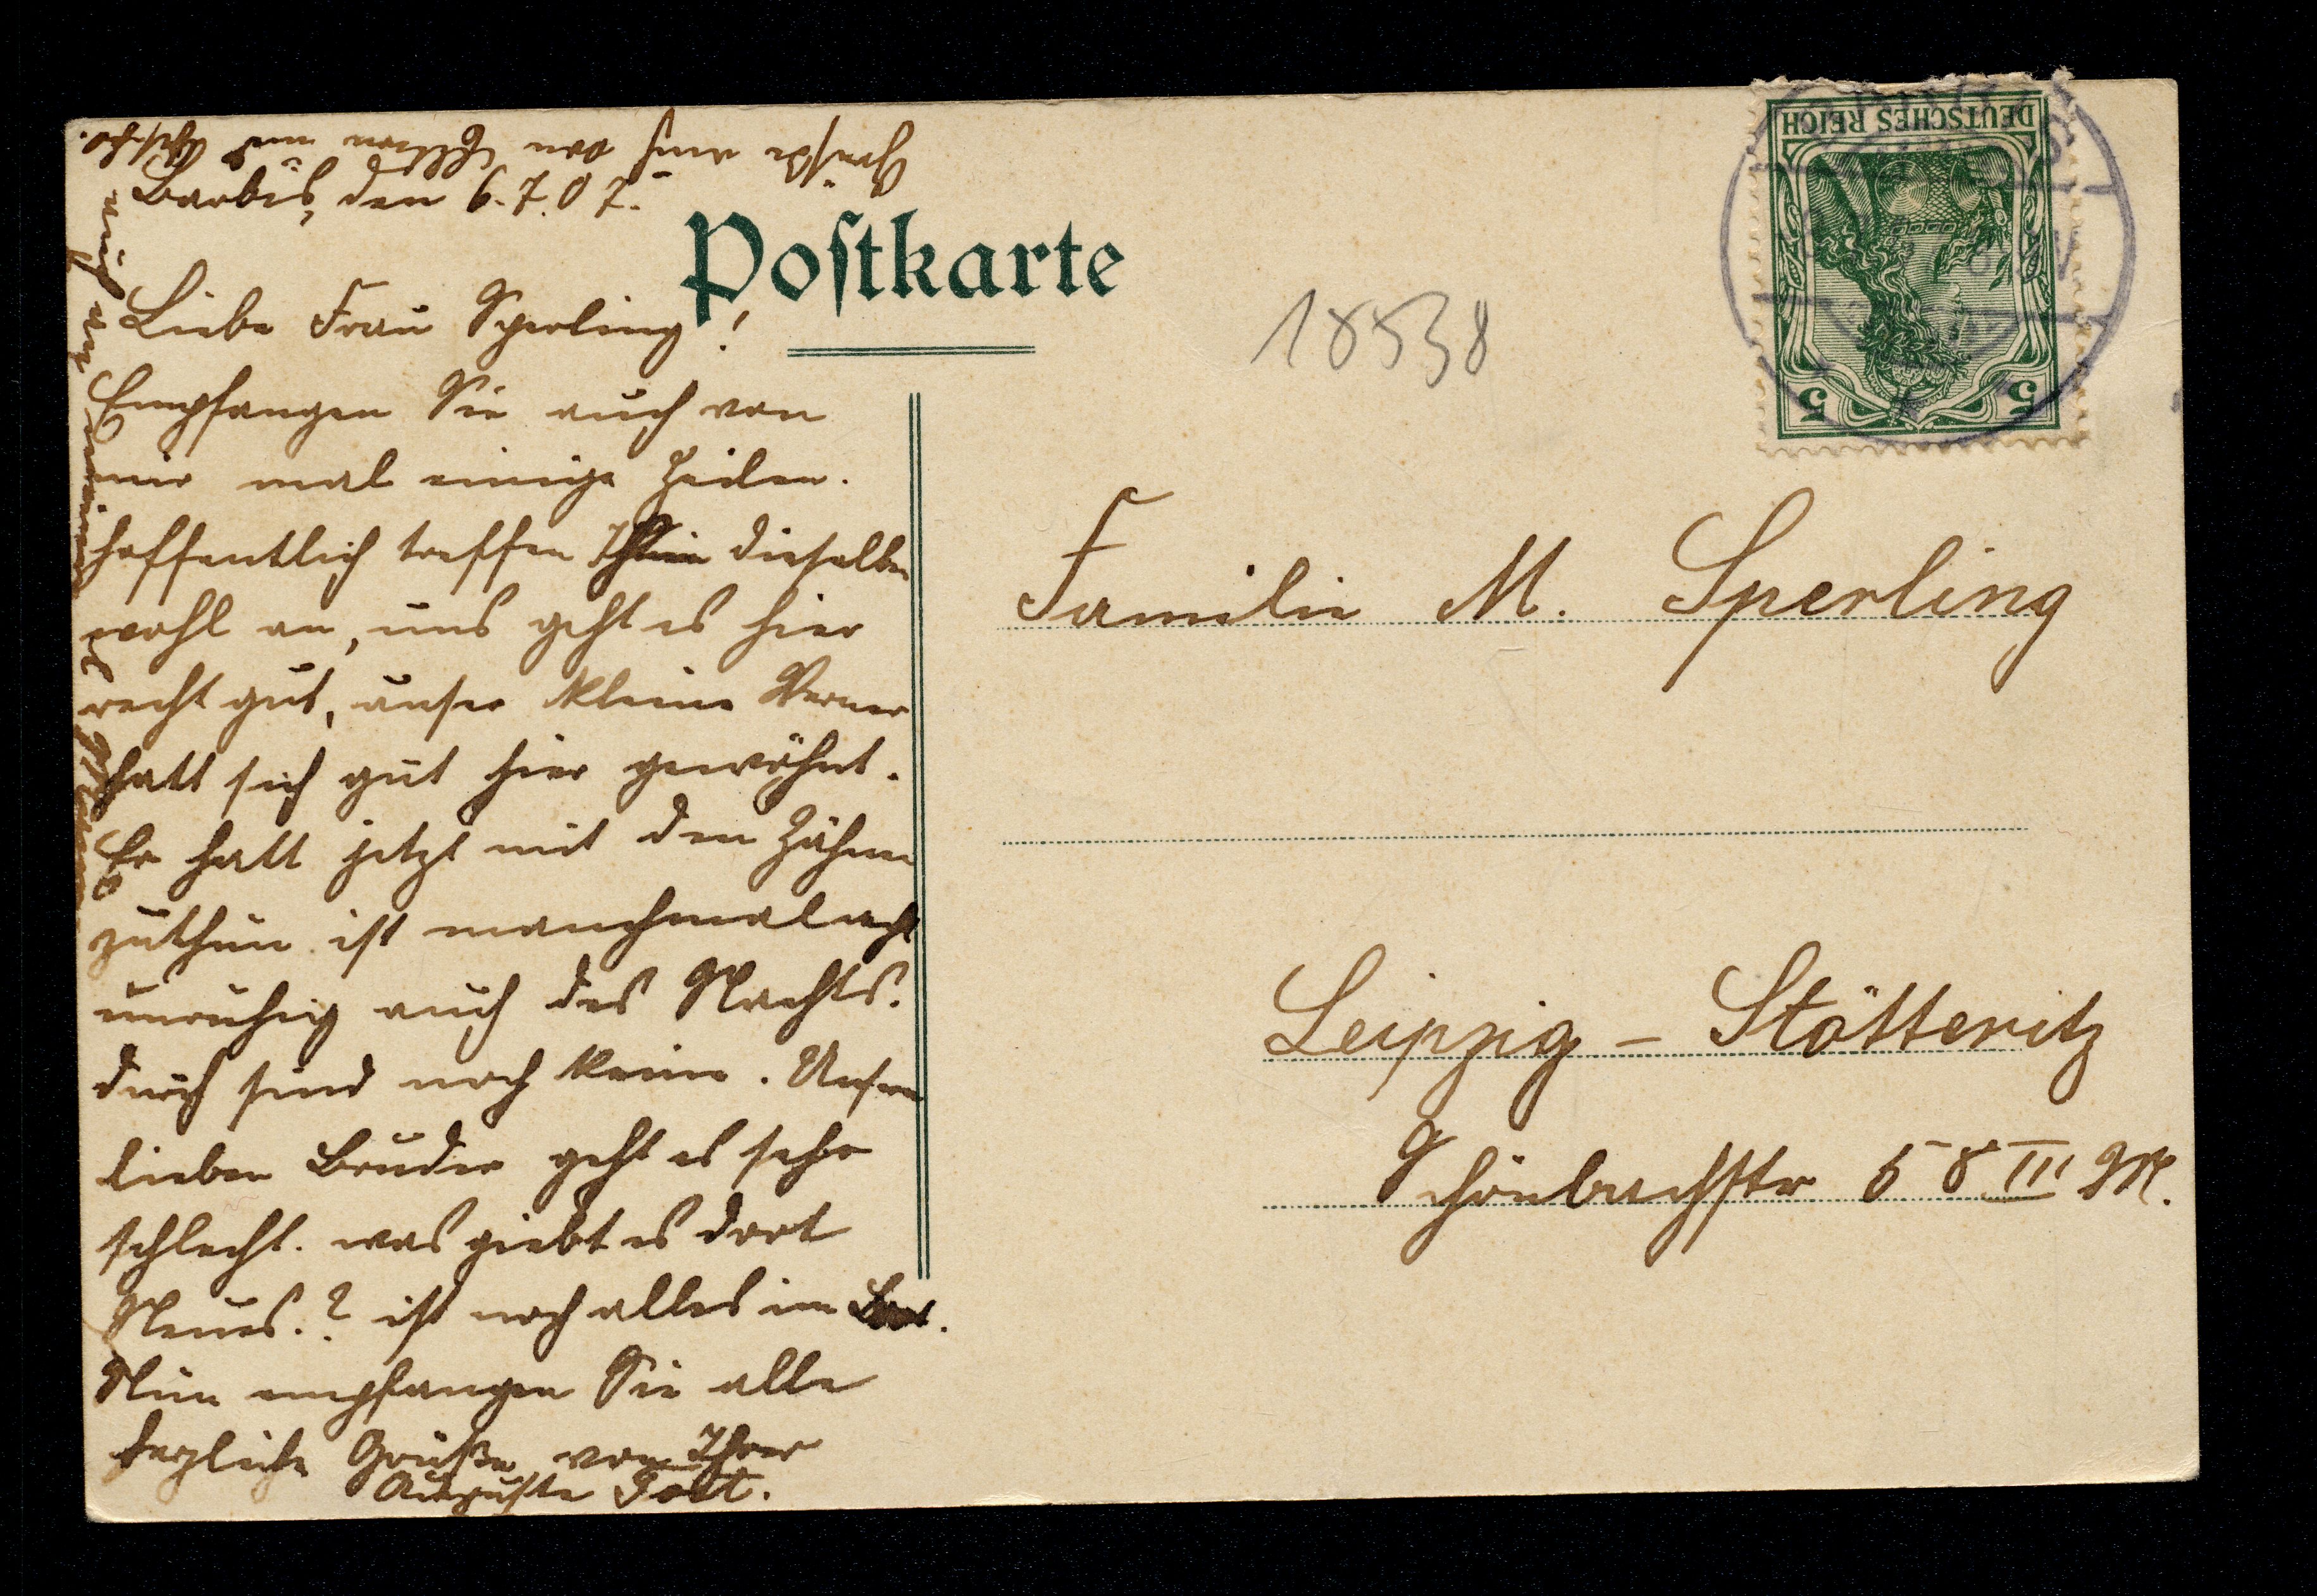 Grüße auch von Eltern und Geschw.
Barbis, den 6.7.07.
Postkarte
Liebe Frau Sperling!
Empfangen Sie auch von
mir mal einige Zeilen.
hoffentlich treffen dieselben
wohl an, uns geht es hier
recht gut, unser kleine Werner
hatt sich gut hier gewöhnt.
Er hatt jetzt mit den Zähnen
zuthun ist manchmal recht
unruhig auch des Nachts.
durch sind noch keine. Unsern
lieben Bruder geht es sehr
schlecht. was giebt es dort
Neues.? ist noch alles im
Nun empfangen Sie alle
herzliche Grüße von Ihrer
Auguste Jost.
auch an
18538
DEUTSCHES REICH
5 5
Familie M. Sperling
Leipzig - Stötteritz
Schönbachstr 58 III M.